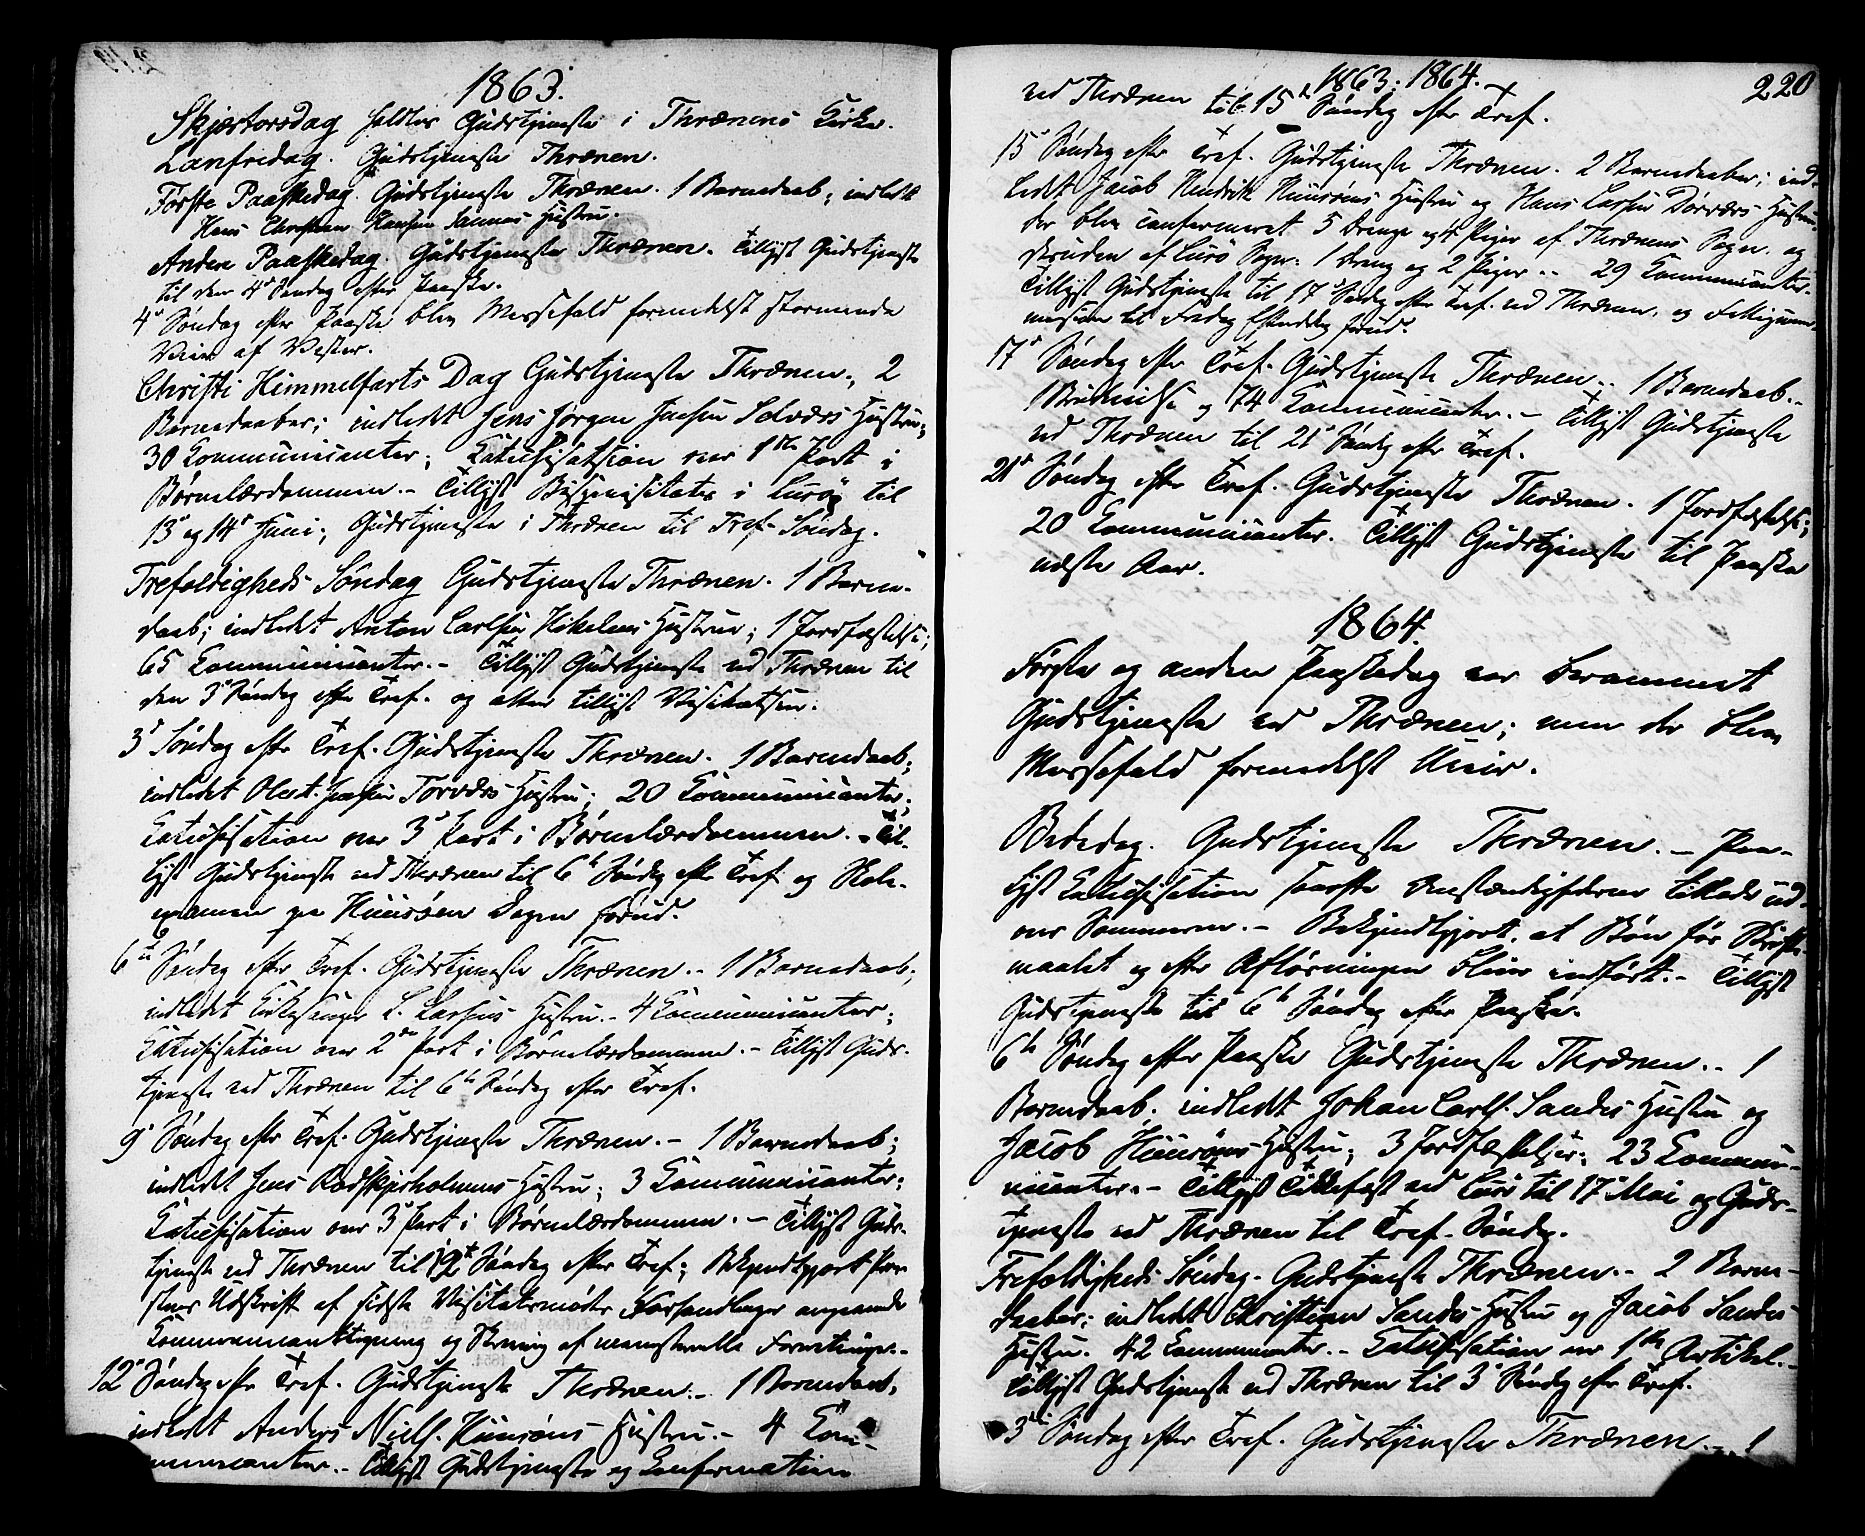 1863.
Skjærtorsdag holdtes Gudstjeneste i Thrænens Kirke.
Lanfredag. Gudstjeneste Thrænen.
Første Paaskedag. Gudstjeneste Thrænen. 1 Barnedaab; indledt
Hans Christian Hansen Sannas Hustru.
Anden Paaskedag. Gudstjeneste Thrænen. Tillyst Gudstjeneste
til den 4de Søndag efter Paaske.
4de Søndag efter Paaske blev Messefald formedelst stormende
Veir af Vester.
Christi Himmelfarts Dag Gudstjeneste Thrænen; 2
Barnedaaber; indledt Jens Jørgen Jensen Selværs Hustru;
30 Communicanter; Catechisation over 1ste Part i
Børnelærdommen. - Tillyst Bispevisitats i Lurø til
13de og 14de Juni; Gudstjeneste i Thrænen til Tref. Søndag.
Trefoldigheds Søndag Gudstjeneste Thrænen. 1 Barne-
daab; indledet Anton Carlsen Hikelens Hustru; 1 Jordfæstelse;
65 Communicanter. - Tillyst Gudstjeneste ved Thrænen til
den 3de Søndag efter Tref. og atter tillyst Visitatsen.
3de Søndag efter Tref. Gudstjeneste Thrænen. 1 Barnedaab;
indledet Torværs Hustru; 20 Communicanter;
Catechisation over 3de Part i Børnelærdommen. - Til-
lyst Gudstjeneste ved Thrænen til 6te Søndag efter Tref og Skole-
examen paa Huusøen Dagen forud.
6te Søndag efter Tref. Gudstjeneste Thrænen. - 1 Barnedaab;
indledet Kirkesanger L. Larsens Hustru. - 4 Communicanter;
Catechisation over 2den Part i Børnelærdommen. - Tillyst Guds-
tjeneste ved Thrænen til 6te Søndag efter Tref.
9de Søndag efter Tref. Gudstjeneste Thrænen. - 1 Barnedaab;
indledet Jens Rødskjærholmens Hustru; 3 Communicanter;
Catechisation over 3de Part i Børnelærdommen. - Tillyst Guds-
tjeneste ved Thrænen til 12te Søndag efter Tref; Bekjendtgjort
Udskrift af sidste Visitatsmøde Forhandlinger angaaende
og af Forretninger.
12te Søndag efter Tref. Gudstjeneste Thrænen. - 1 Barnedaab,
indledt Anders Niels. Huusøens Hustru. - 4 Com-
municanter. - Tillyst Gudstjeneste og Confirmation
1863: 1864.
220
ved Thrænen til 15de Søndag efter Tref.
15de Søndag efter Tref. Gudstjeneste Thrænen. 2 Barnedaaber; ind-
ledet Jacob Hendrik Huusøens Hustru og Hans Larsen Dørværs Hustru
der blev confirmeret 5 Drenge og 4 Piger af Thrænens Sogn, og
desuden af Lurø Sogn: 1 Dreng og 2 Piger. - 29 Communicanter.
Tillyst Gudstjeneste til 17de Søndag efter Tref. ved Thrænen, og
til Fredag forud.
17de Søndag efter Tref. Gudstjeneste Thrænen. - 1 Barnedaab. -
1 Brudevielse og 74 Communicanter. - Tillyst Gudstjeneste
ved Thrænen til 21de Søndag efter Tref.
21de Søndag efter Tref. Gudstjeneste Thrænen. 1 Jordfæstelse;
20 Communicanter. Tillyst Gudstjeneste til Paaske
næste Aar.
1864.
Første og anden Paaskedag var berammet
Gudstjeneste ved Thrænen; men der blev
Messefald formedelst Uveir.
Bededag. Gudstjeneste Thrænen. - Paa-
lyst Catechisation saavidt Omstændighederne tillade ud-
over Sommeren. - Bekjendtgjort, at Bøn før Skrifte-
maalet og efter Afløsningen bliver indført. - Tillyst
Gudstjeneste til 6te Søndag efter Paaske.
6te Søndag efter Paaske Gudstjeneste Thrænen. - 1
Barnedaab; indledt Johan Carls. Sandes Hustru og
Jacob Huusøens Hustru; 3 Jordfæstelser; 23 Commu-
nicanter. - Tillyst ved Lurø til 17de Mai og Guds-
tjeneste ved Thrænen til Tref. Søndag.
Trefoldigheds Søndag. Gudstjeneste Thrænen. - 2 Barne-
daaber; indledet Christian Sandes Hustru og Jacob Sandes
Hustru. 42 Communicanter. - Catechisation over 1ste Artikel. -
Tillyst Gudstjeneste ved Thrænen til 3de Søndag efter Tref.
3die Søndag efter Tref. Gudstjeneste Thrænen. - 1